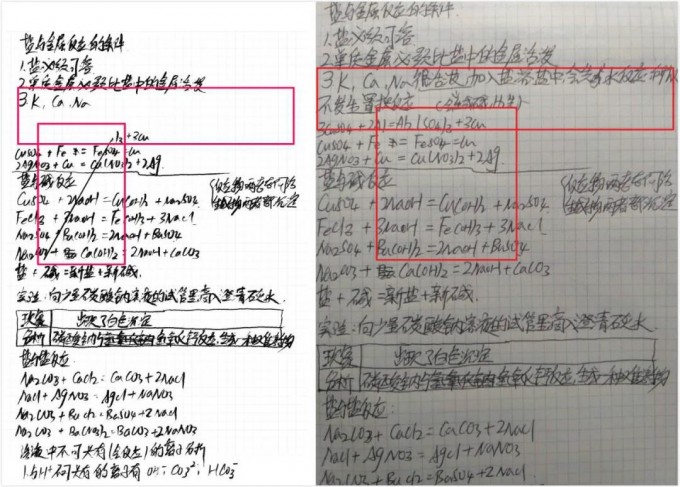 盐与金属反应的条件
1.盐必须可溶
2.单质金属必须比盐中的金属活泼
3.K, Ca, Na
)3+3Cu
CuSO4 + Fe = FeSO4 Cu
2AgNO3+Cu = Cu(NO3)2+2Ag
盐与碱反应
CuSO4 + 2NaOH = Cu(OH)2 + Na2SO4
FeCl3 + 3NaOH = Fe(OH)3 + 3NaCl
Na2SO4 + Ba(OH)2 = 2NaOH + BaSO4
Na2CO3 + Ca(OH)2 = 2NaOH + CaCO3
盐 + 碱 = 新盐 + 新碱.
实验: 向少量碳酸钠溶液的试管里滴入澄清石灰水
现象 出现了白色沉淀
分析 碳酸钠与氢氧化钙反应,生成一种
盐与盐反应:
Na2CO3 + CaCl2 = CaCO3 + 2NaCl
NaCl + AgNO3 = AgCl + NaNO3
Na2SO4 + BaCl2 = BaSO4 + 2NaCl
Na2CO3 + Ba(NO3)2 = BaCO3 + 2NaNO3
溶液中不可共存(会反应)的离子分析
1.与H+不可共存的离子有 OH-, CO3 2-, HCO3-
盐与金属反应的条件
1.盐必须可溶
2.单质金属必须比盐中的金属活泼
3.K, Ca, Na 很活泼,加入盐溶液中会先与水反应
不发生置换反应
3CuSO4 + 2Al = Al2(SO4)3 + 3Cu
CuSO4 + Fe = FeSO4 Cu
2AgNO3+Cu = Cu(NO3)2+2Ag.
盐与碱反应
CuSO4 + 2NaOH = Cu(OH)2 + Na2SO4
FeCl3 + 3NaOH = Fe(OH)3 + 3NaCl
Na2SO4 + Ba(OH)2 = 2NaOH + BaSO4
Na2CO3 + Ca(OH)2 = 2NaOH + CaCO3
盐 + 碱 = 新盐 + 新碱.
实验: 向少量碳酸钠溶液的试管里滴入澄清石灰水
现象 出现了白色沉淀
分析 碳酸钠与氢氧化钙反应,生成一种
盐与盐反应:
Na2CO3 + CaCl2 = CaCO3 + 2NaCl
NaCl + AgNO3 = AgCl + NaNO3
Na2SO4 + BaCl2 = BaSO4 + 2NaCl